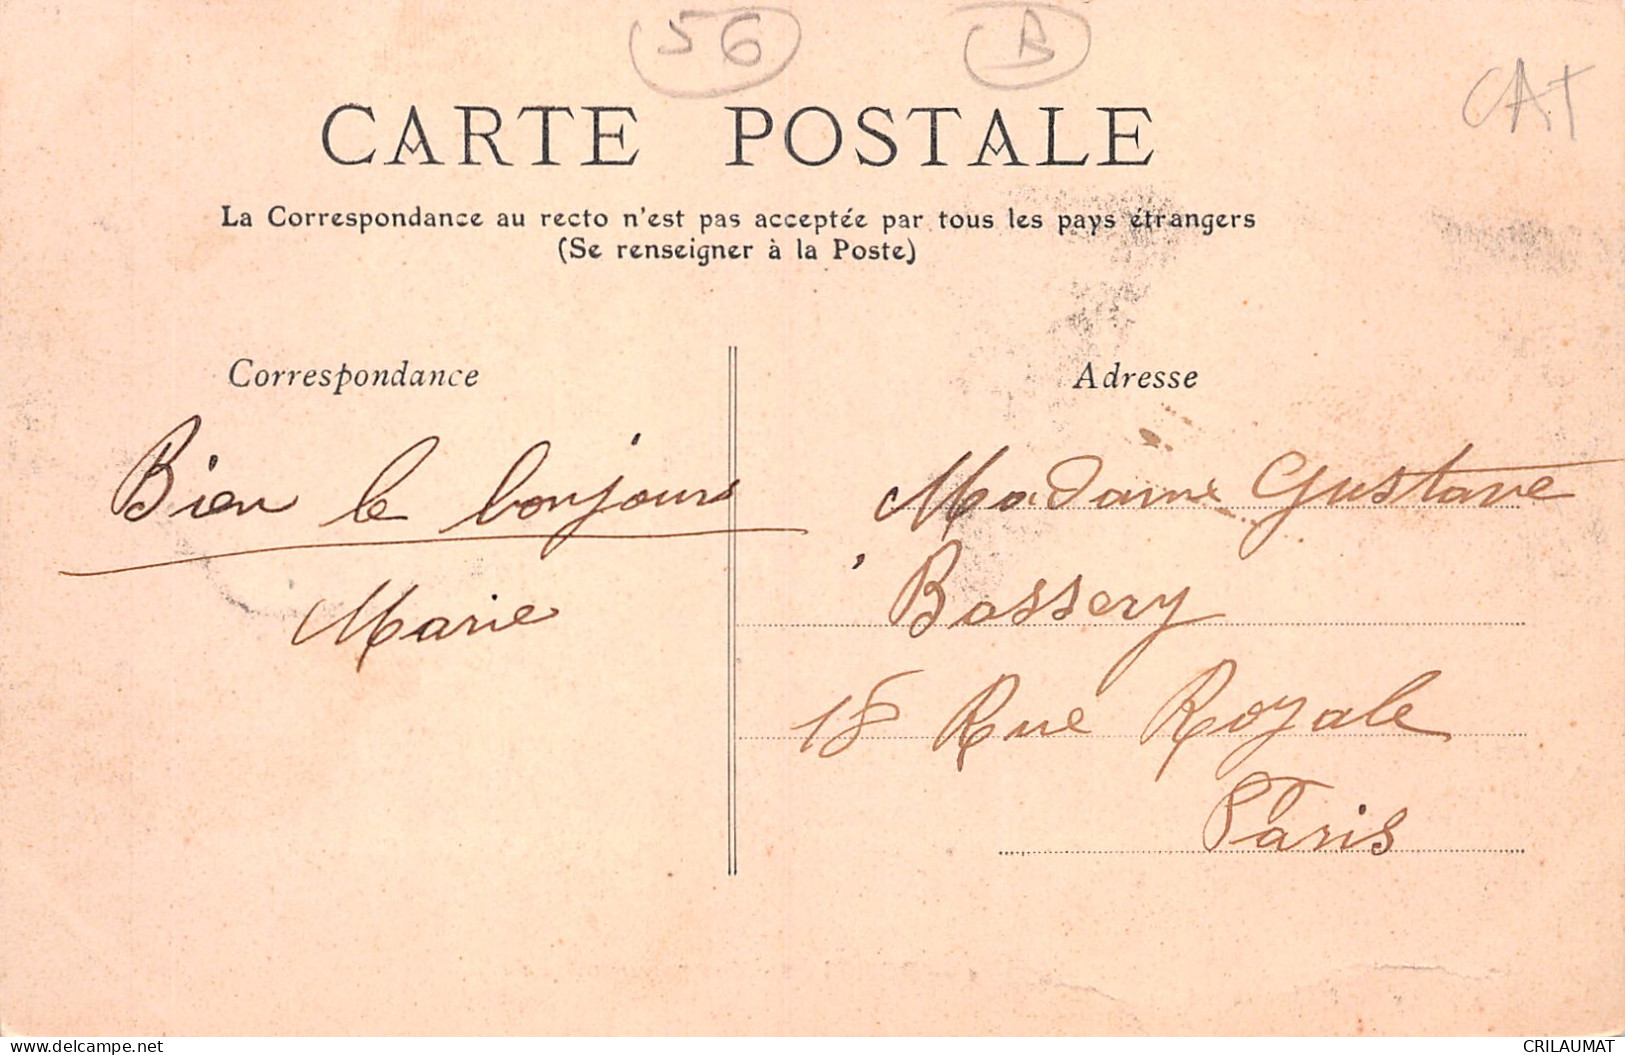 56 B
CAT
CARTE POSTALE
La Correspondance au recto n'est pas acceptée par tous les pays étrangers
(Se renseigner à la Poste)
Correspondance
Bien le bonjour
Marie
Adresse
Madame Gustave
Bossery
18 Rue Royale
Paris
www.delcampe.net
CRILAUMAT